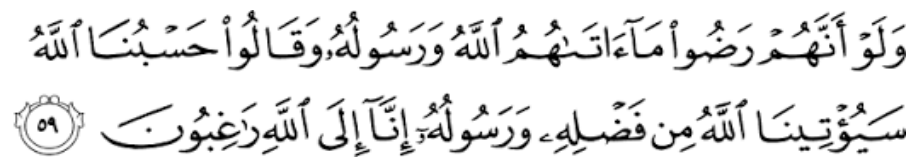 وَلَوْ أَنَّهُمْ رَضُوا۟ مَآ ءَاتَىٰهُمُ ٱللَّهُ وَرَسُولُهُۥ وَقَالُوا۟ حَسْبُنَا ٱللَّهُ
سَيُؤْتِينَا ٱللَّهُ مِن فَضْلِهِۦ وَرَسُولُهُۥٓ إِنَّآ إِلَى ٱللَّهِ رَٰغِبُونَ ٥٩